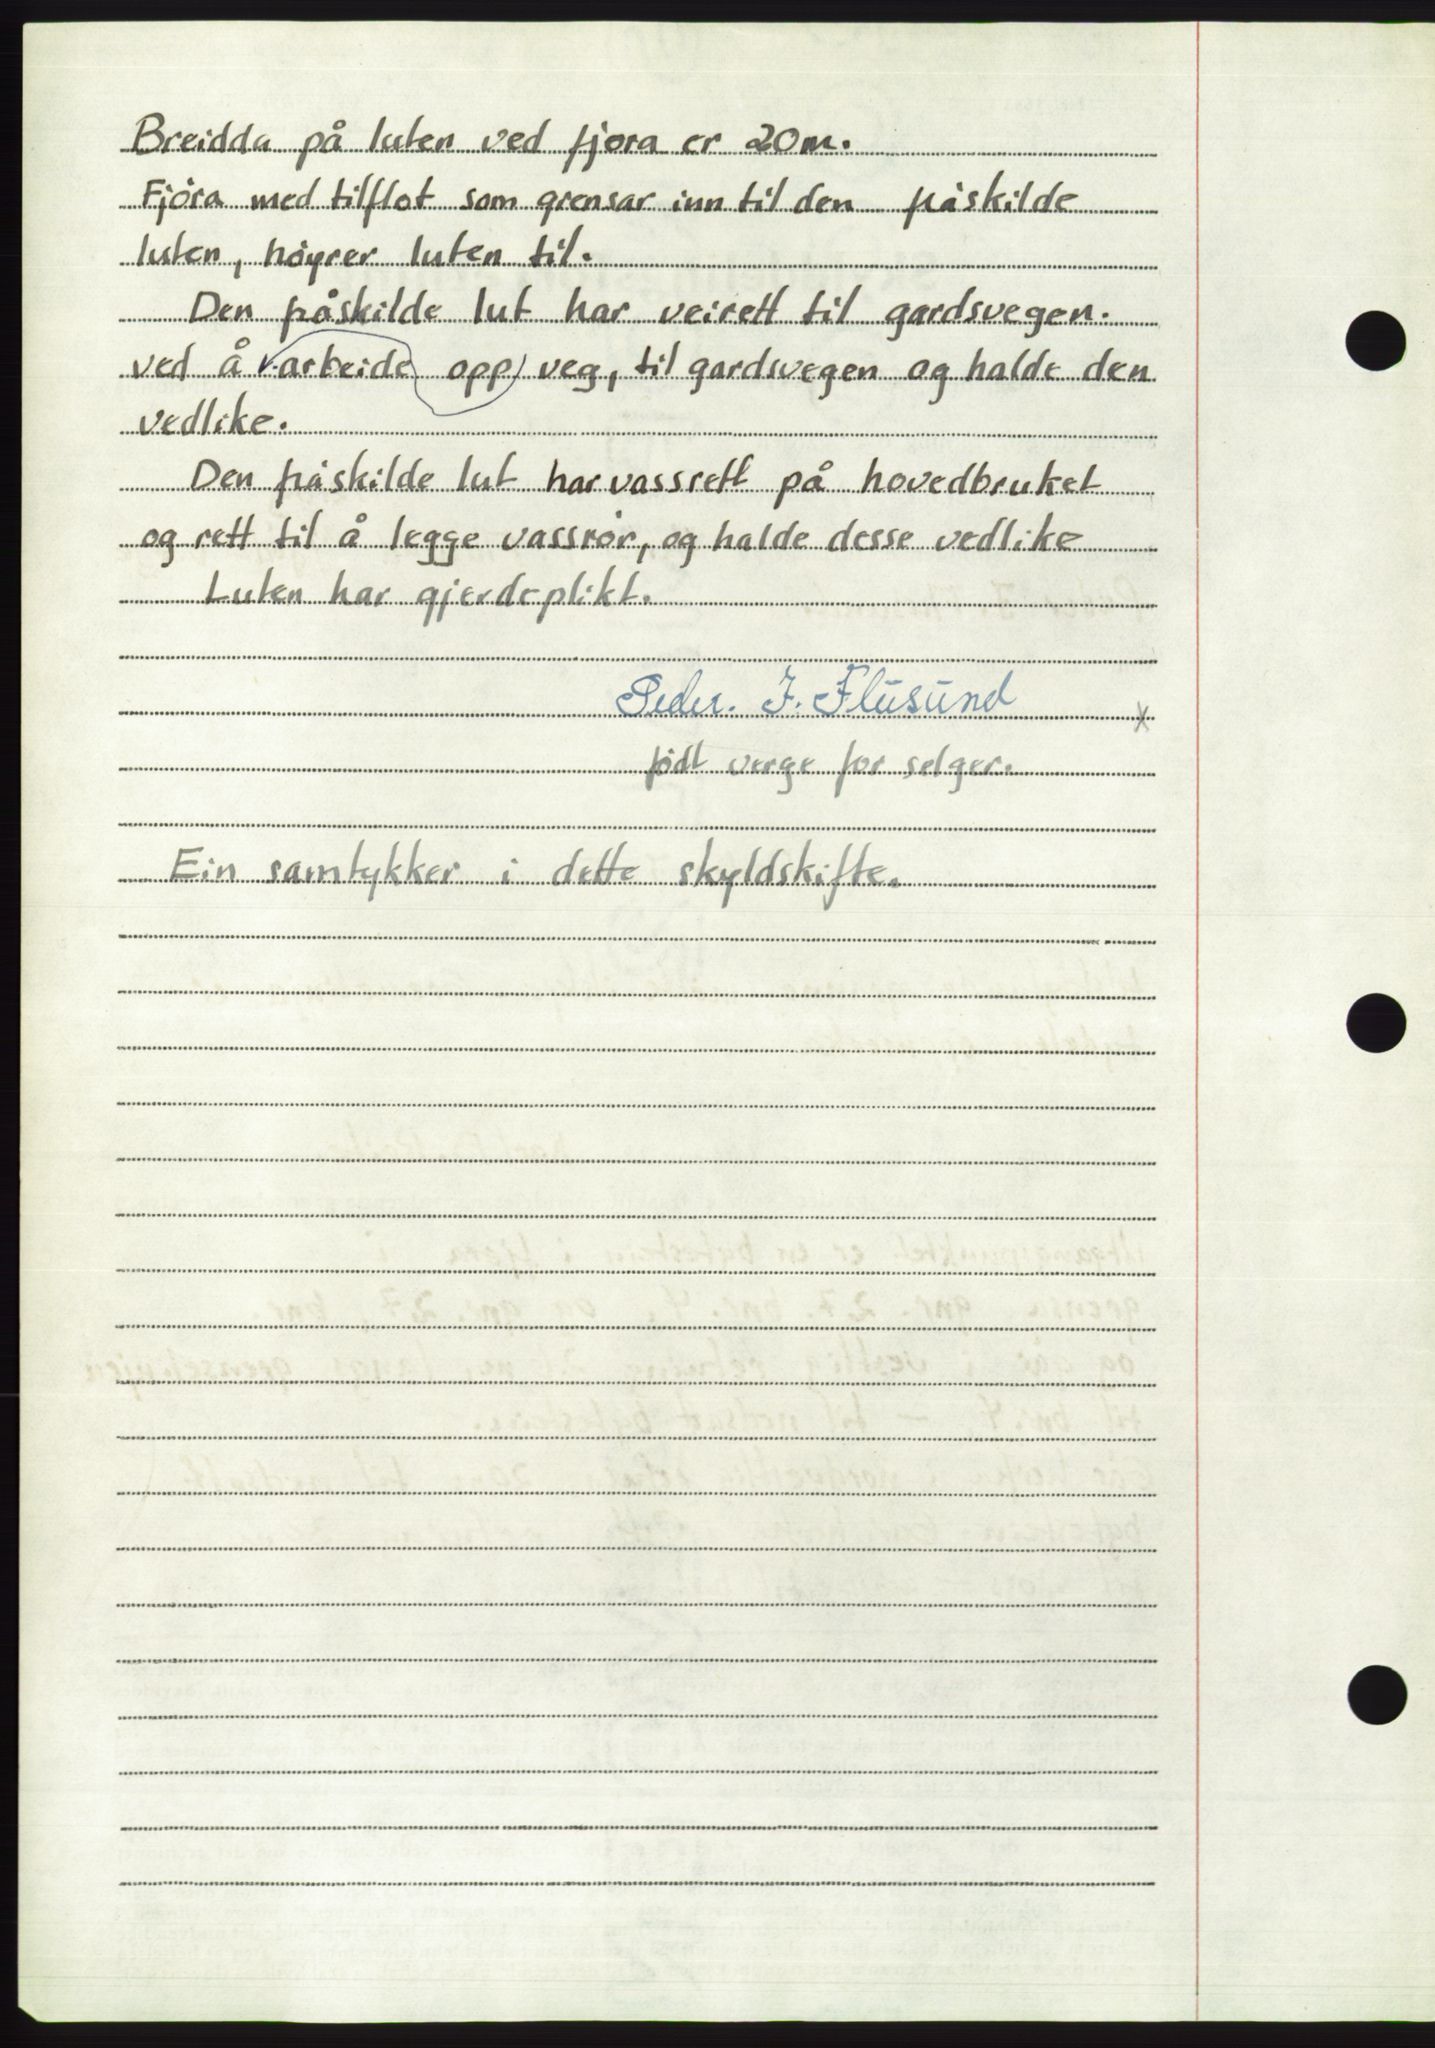 Breidda på luten ved fjøra er 20m.
Fjøra med tilflot som grensar inn til den fråskilde
luten, høyrer luten til.
Den fråskilde lut har veirett til gardsvegen.
ved å arbeide opp veg, til gardsvegen og halde den
vedlike.
Den fråskilde lut har vassrett på hovedbruket
og rett til å legge vassrør, og halde desse vedlike
Luten har gjerdeplikt.
Peder. J. Flusund
født verge for selger.
Ein samtykker i dette skyldskifte.